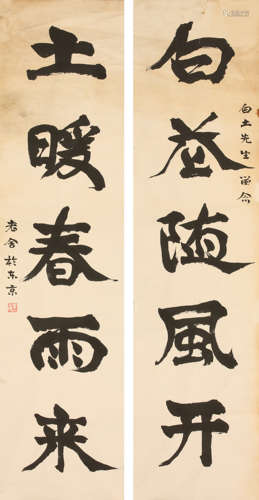 白花随風开
白土先生留念
土暖春雨来
老舍於东京